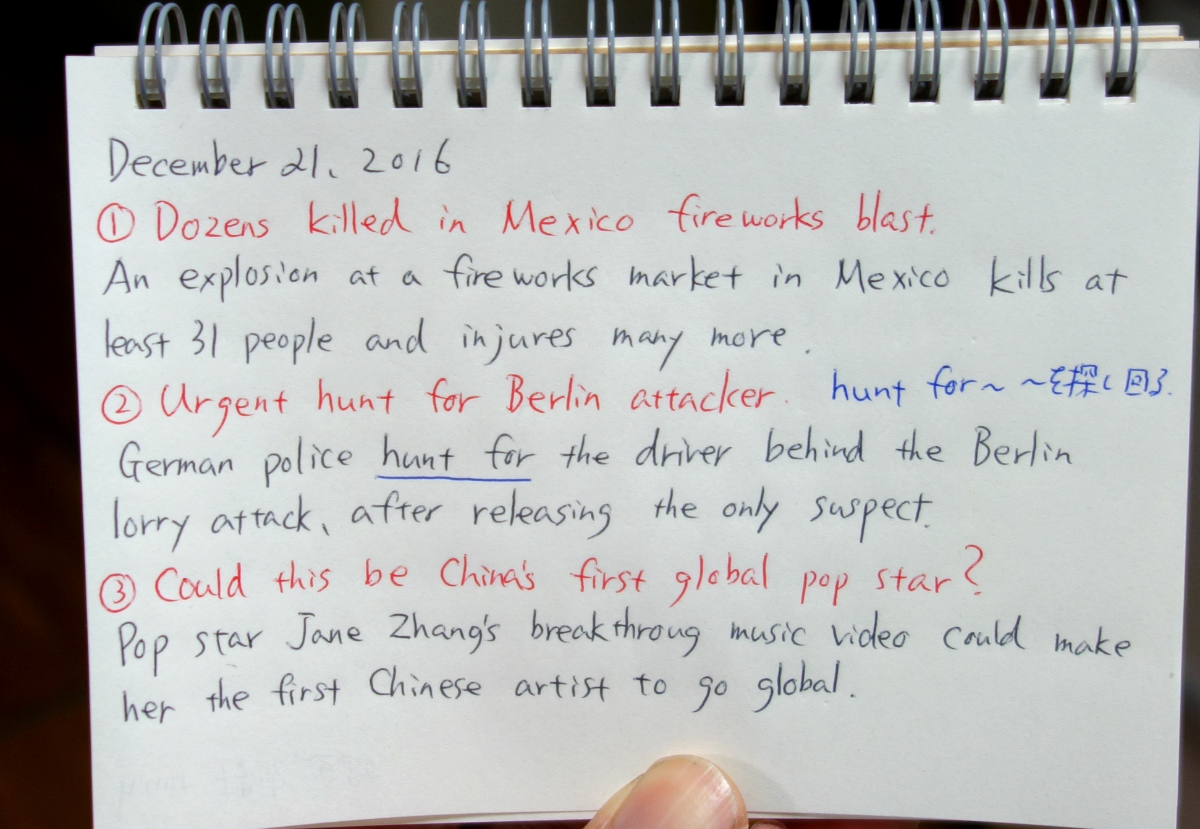 December 21, 2016
① Dozens killed in Mexico fireworks blast.
An explosion at a fireworks market in Mexico kills at
least 31 people and injures many more.
② Urgent hunt for Berlin attacker. hunt for~ ~を探し回る.
German police hunt for the driver behind the Berlin
lorry attack, after releasing the only suspect.
③ Could this be China's first global pop star?
Pop star Jane Zhang's breakthroug music video could make
her the first Chinese artist to go global.